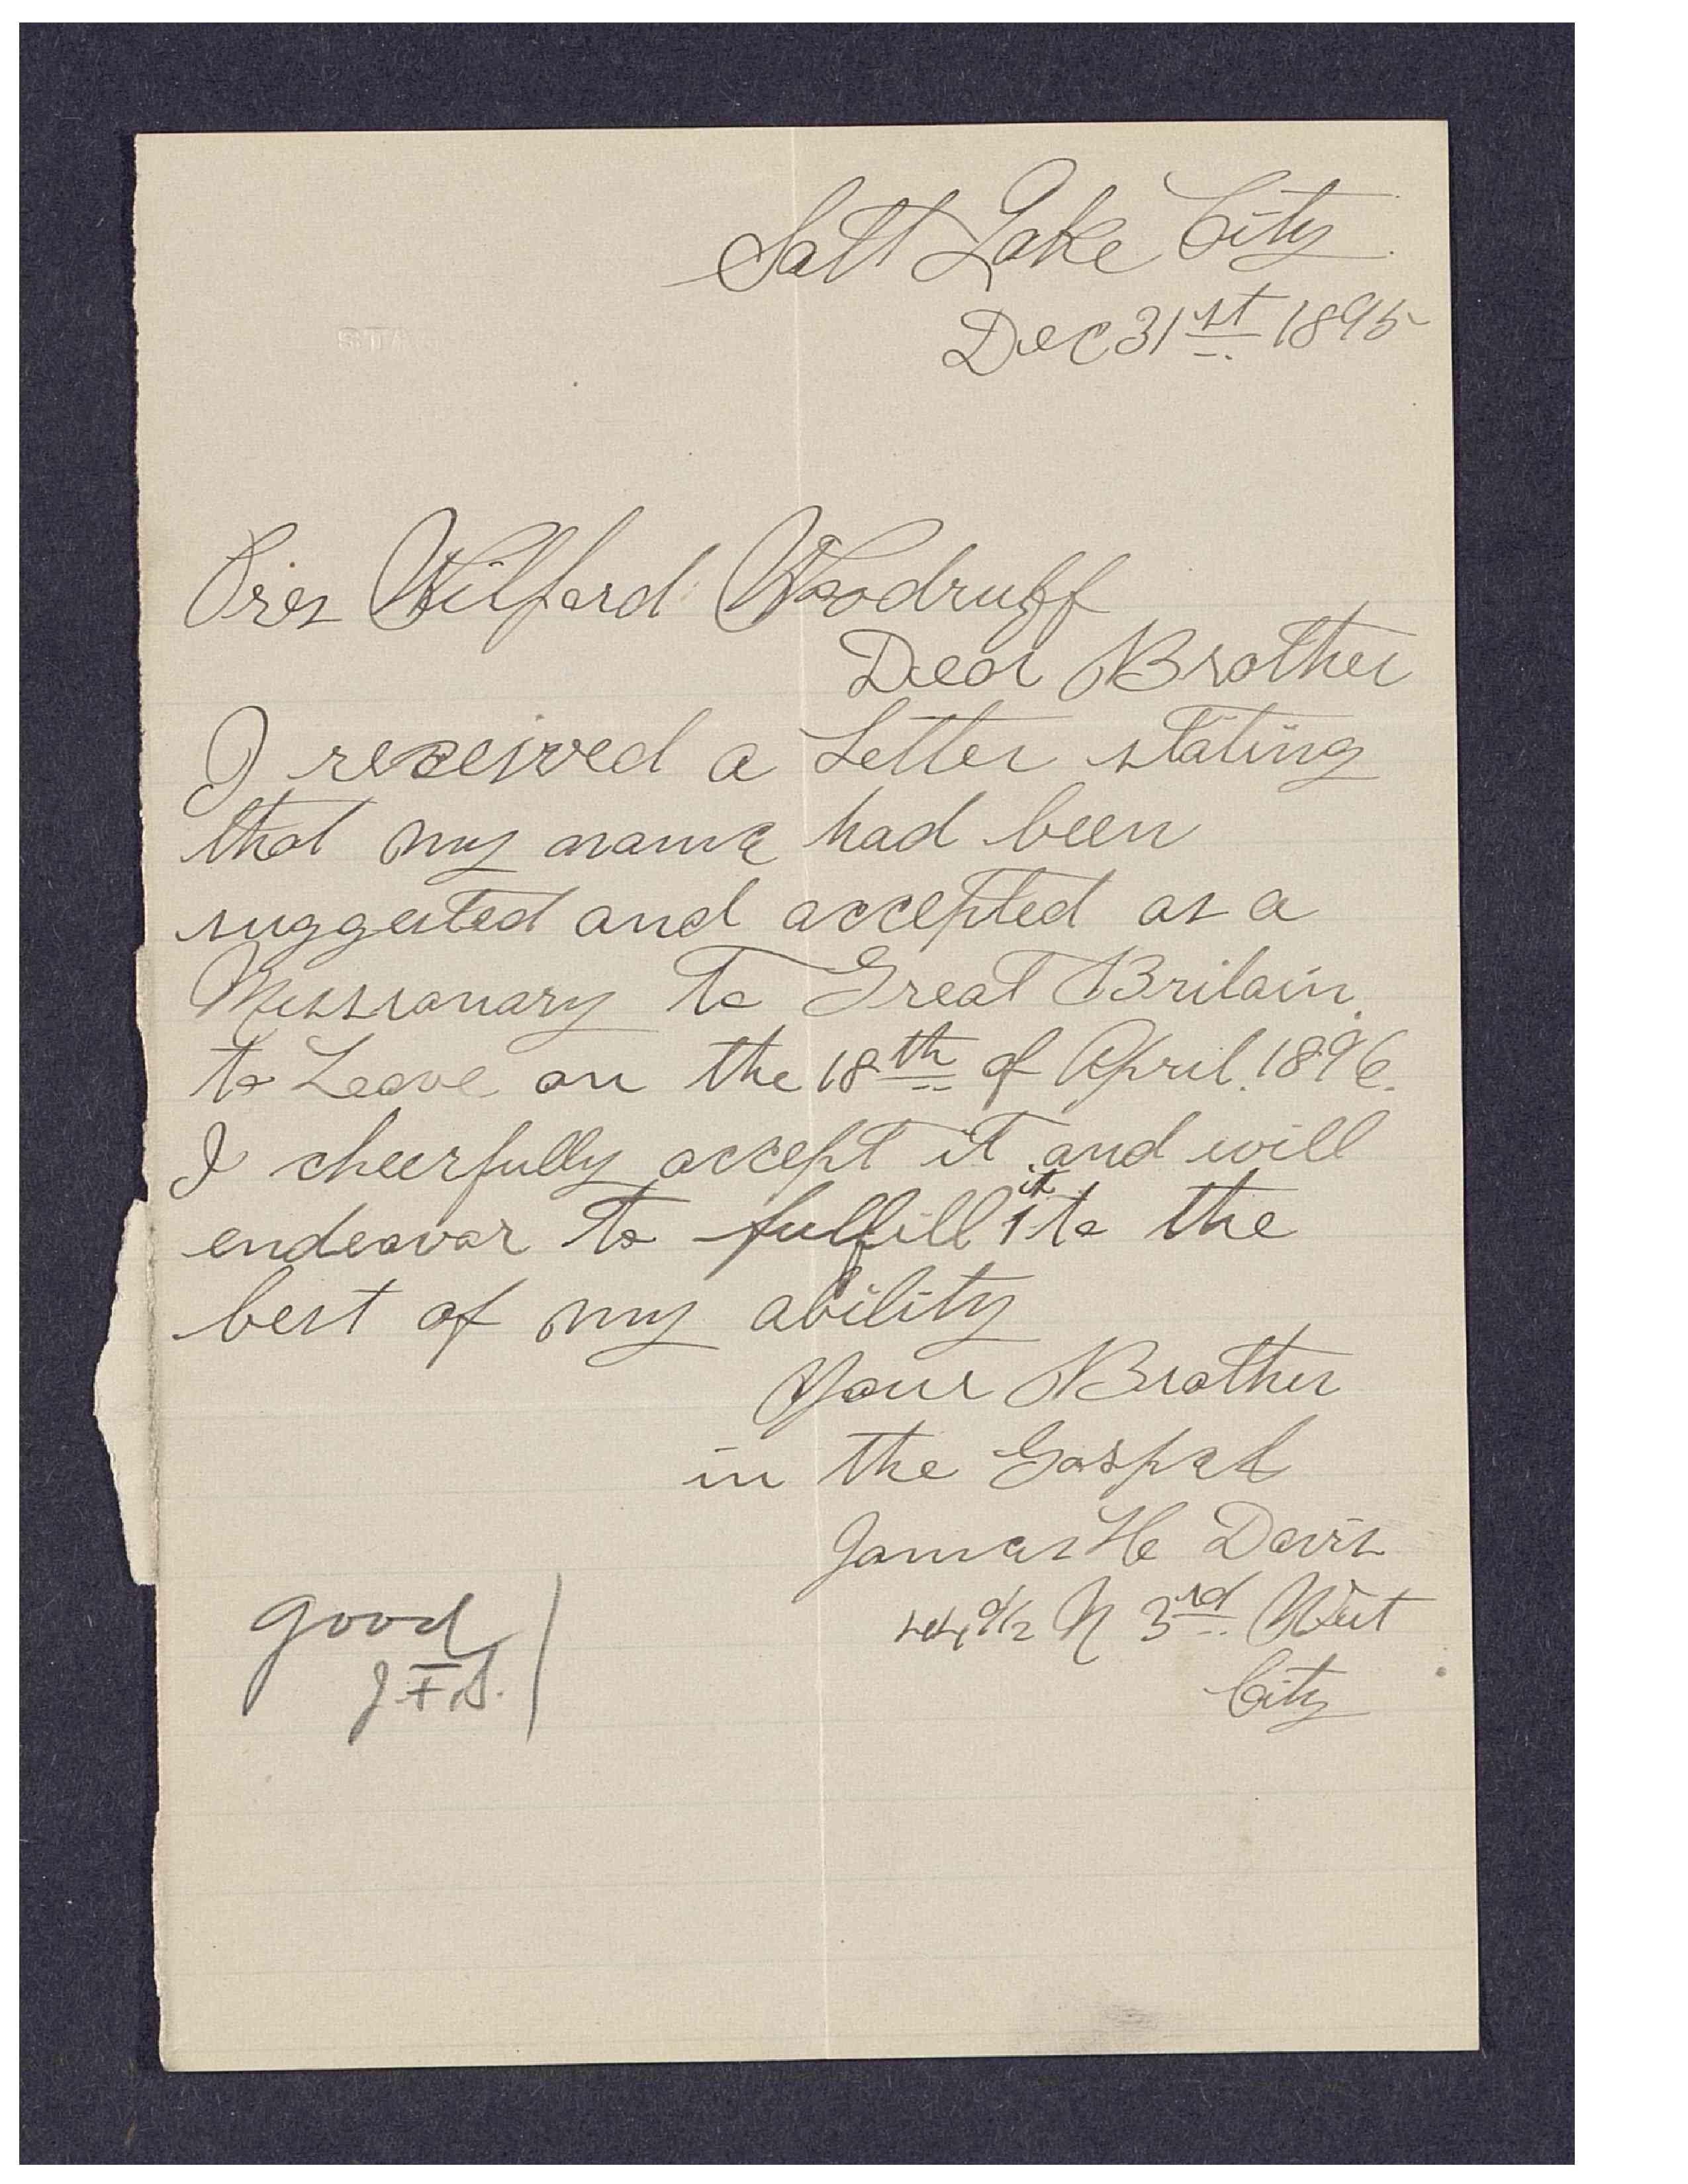 Salt Lake City
Dec 31st 1895
Pres Wilford Woodruff
Dear Brother
I received a Letter stating
that my name had been
suggested and accepted as a
Missionary to Great Britain.
to Leave on the 18th of April. 1896.
I cheerfully accept it and will
endeavor to fulfill it to the
best of my ability
Your Brother
in the Gospel
James H Davis
N 3rd West
City
good
J.F.S.